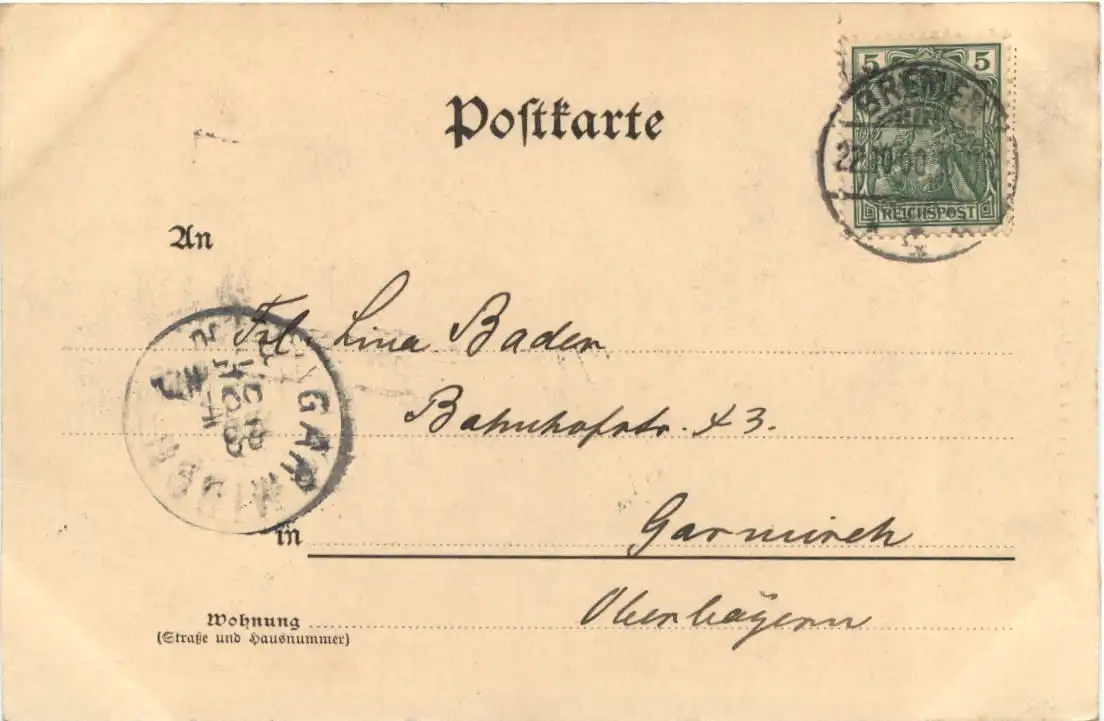 Postkarte
5 5
BREMEN
REICHSPOST
An
Frl. Lina Baden
Bahnhofstr. 43.
GARMISCH
in Garmisch
Oberbayern
Wohnung
(Straße und Hausnummer)